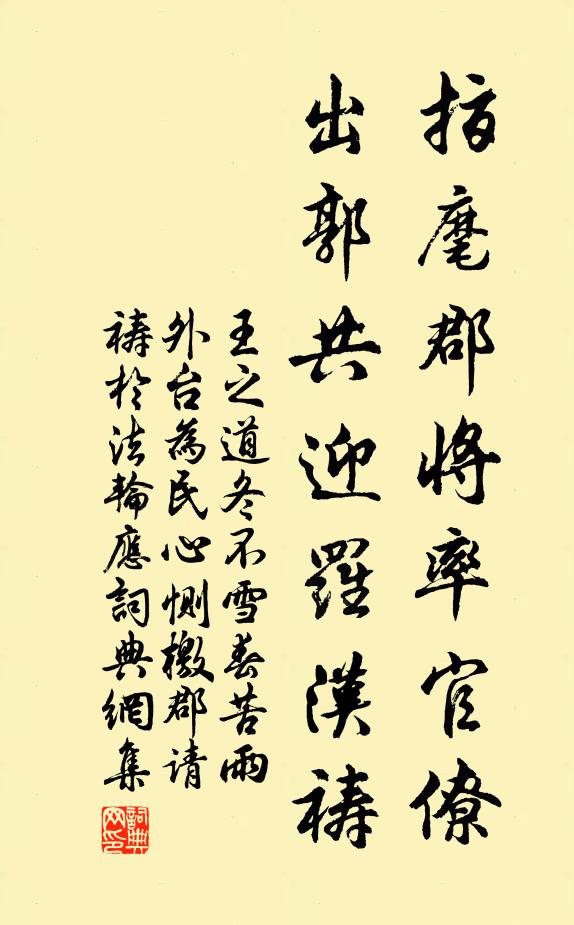 指麾郡將率官僚
出郭共迎羅漢祷
王之道冬不雪春苦雨
外台為民心惻檄郡请
祷於法輪應詞典網集
詞典网印